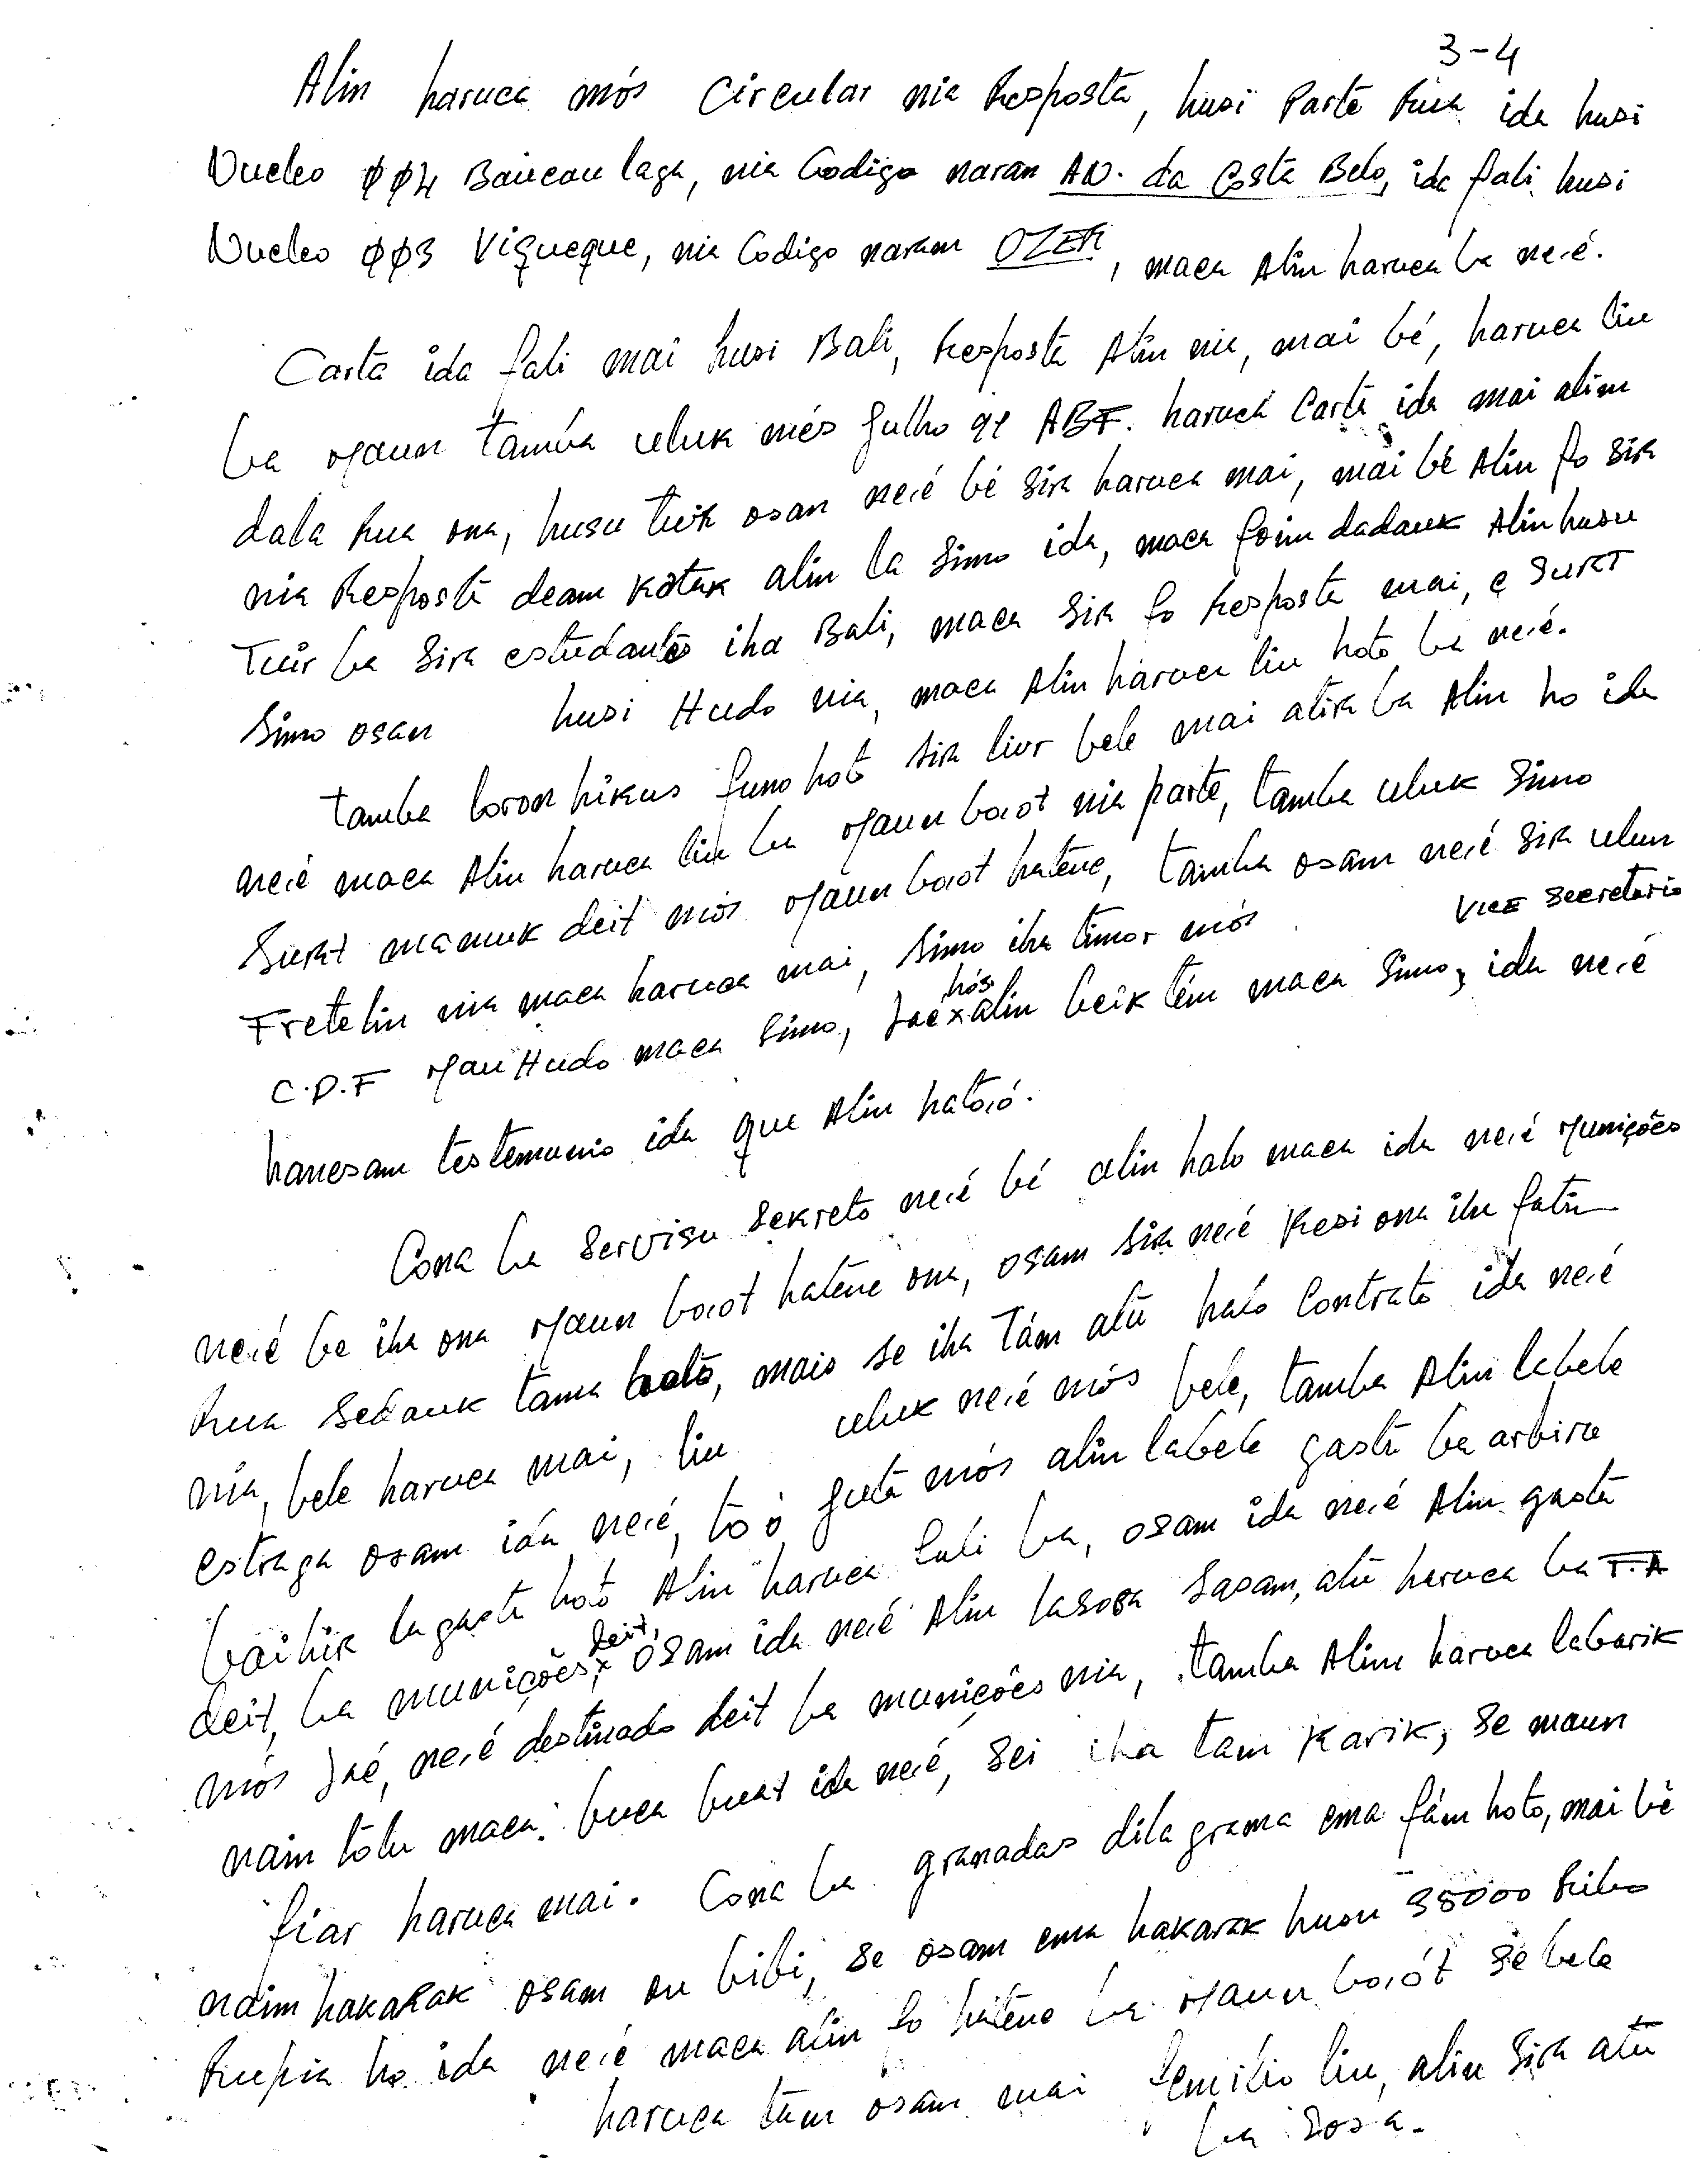 3-4
Alin haruca mós Circular nia Resposta, husi Parte Rua ida husi
Nucleo φφ4 Baucau laga, nia Codigo naran AN. da Costa Belo, ida fali husi
Nucleo φφ3 Viqueque, nia Codigo naran OZER, maca Alin haruca ba ne.é.
Carta ida fali mai husi Bali, Resposta Alin nia, mai bé, haruca liu
ba Maun tamba uluk més Julho 91 ABF. haruca Carta ida mai alin
dala Rua ona, husu tuir osan ne.é bé sira haruca mai, mai bé Alin fo sira
nia Resposta deam Katak alin la simo ida, maca foin dadauk Alin husu
Tuir ba sira estudante iha Bali, maca sira fo Resposta mai, e SURT
simo osan husi Hudo nia, maca Alin haruca liu hoto ba ne.é.
Tamba loron hikus funo hot sira liur bele mai atira ba Alin ho ida
ne.é maca Alin haruca liu ba Maun bo.ot nia parte, tamba uluk simo
Surat mamuk deit mós Maun bo.ot hatene, tamba osam ne.é sira ulun
Fretelin nia maca haruca mai, simo iha timor mós Vice Secretario
C.D.F Mau Hudo maca simo, Laé hósi alin beik tém maca simo, ida ne.é
hanesam testemunio ida que Alin hato.ó.
Cona ba Servisu Sekreto ne.é bé alin halo maca ida ne.é Munições
ne.é be iha ona Maun bo.ot hatene ona, osam sira ne.é Kesi ona iha fatin
Rua sedauk tama hoto, mais se iha Tám atu halo Contrato ida ne.é
nia, bele haruca mai, liu uluk ne.é mós bele, tamba Alin labele
estraga osam ida ne.é, to ó Juta mós alin labele gasta ba arbiru
baihir la gasta hoto Alin haruca fali ba, osam ida ne.é Alin gasta
deit, ba munições deit, osam ida ne.é Alin lasosa sasam, atu haruca ba F.A
mós Laé, ne.é destinado deit ba munições nia, tamba Alin haruca labarik
nain tolu maca buca buat ida ne.é, sei iha tam Karik, se maun
fiar haruca mai. Cona ba granadas dilagrama ema fám hoto, mai bé
naim hakarak osam ou bibi, se osam ema hakarak husu 35000 Ribo
Rupia ho ida ne.é maca alin fo hatene ba Maun bo.ót se bele
haruca tam osam mai Lemilio liu, alin sira atu
ba sosa.